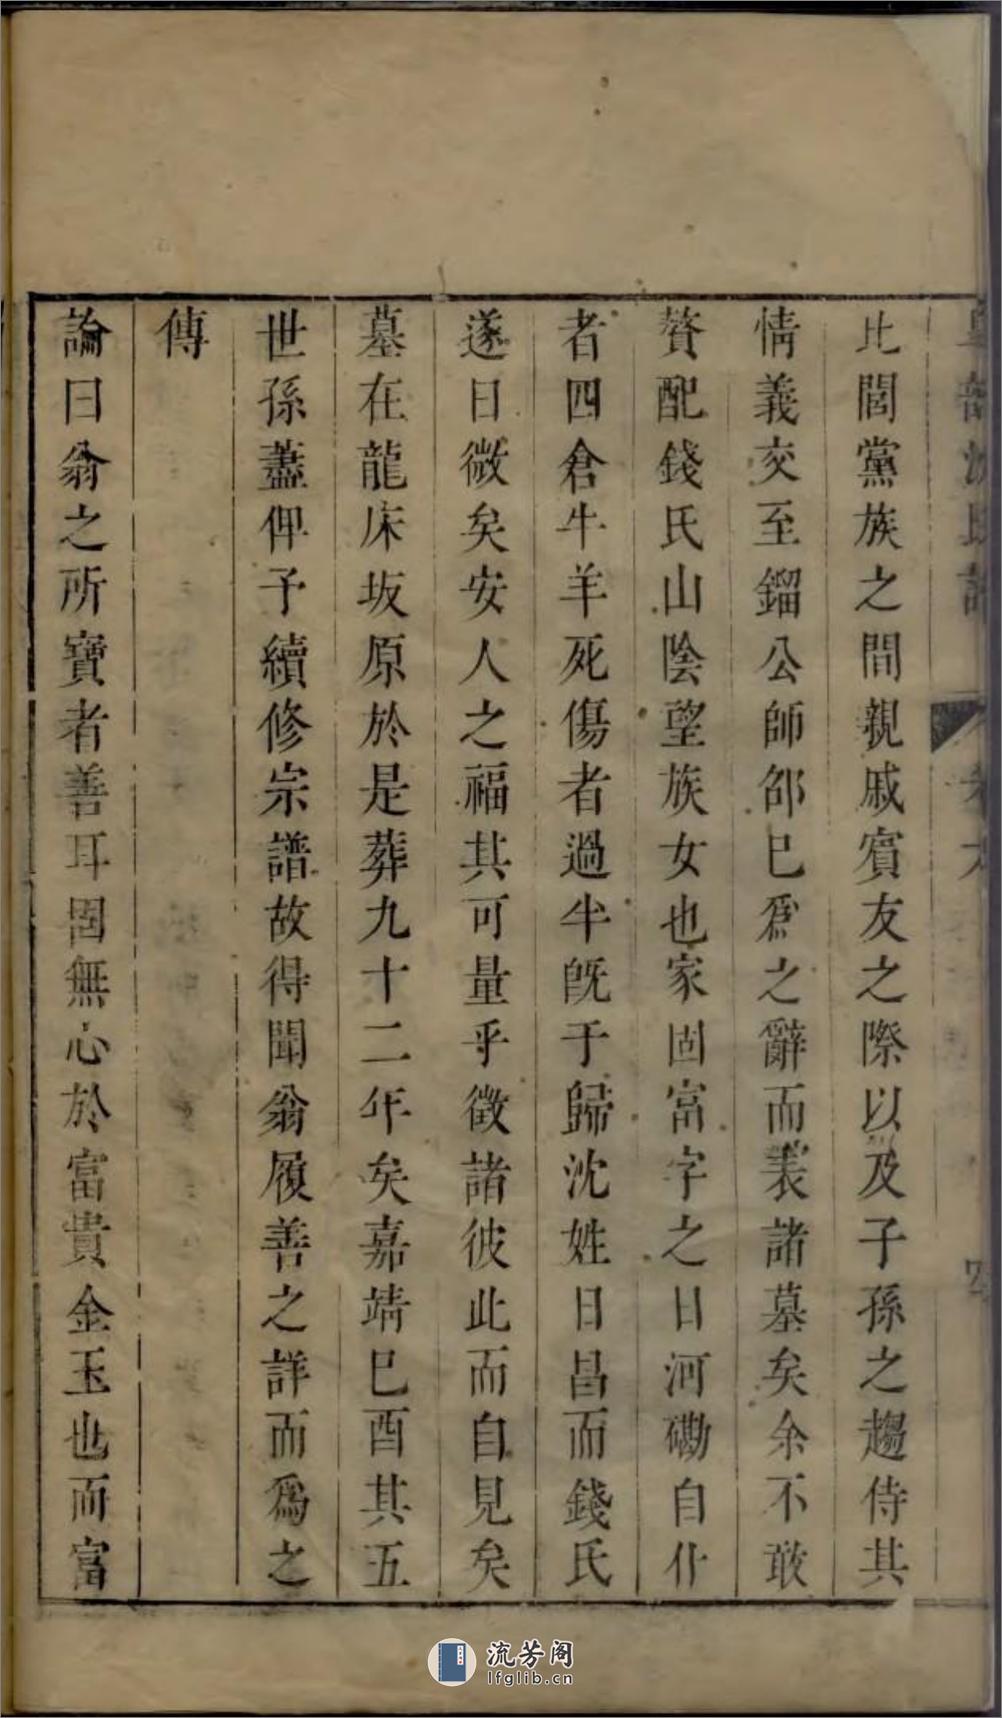 比閭黨族之間親戚賓友之際以及子孫之趨侍其
情義交至鎦公師邵已爲之辭而裳諸墓矣余不敢
贅配錢氏山陰望族女也家固富字之日河磡自仆
者四倉牛羊死傷者過半旣于歸沈姓日昌而錢氏
遂日微矣安人之福其可量乎徵諸彼此而自見矣
墓在龍床坂原於是葬九十二年矣嘉靖已酉其五
世孫蓋俾予續修宗譜故得聞翁履善之詳而爲之
傳
論曰翁之所寶者善耳固無心於富貴金玉也而富
流芳阁
lfglib.cn